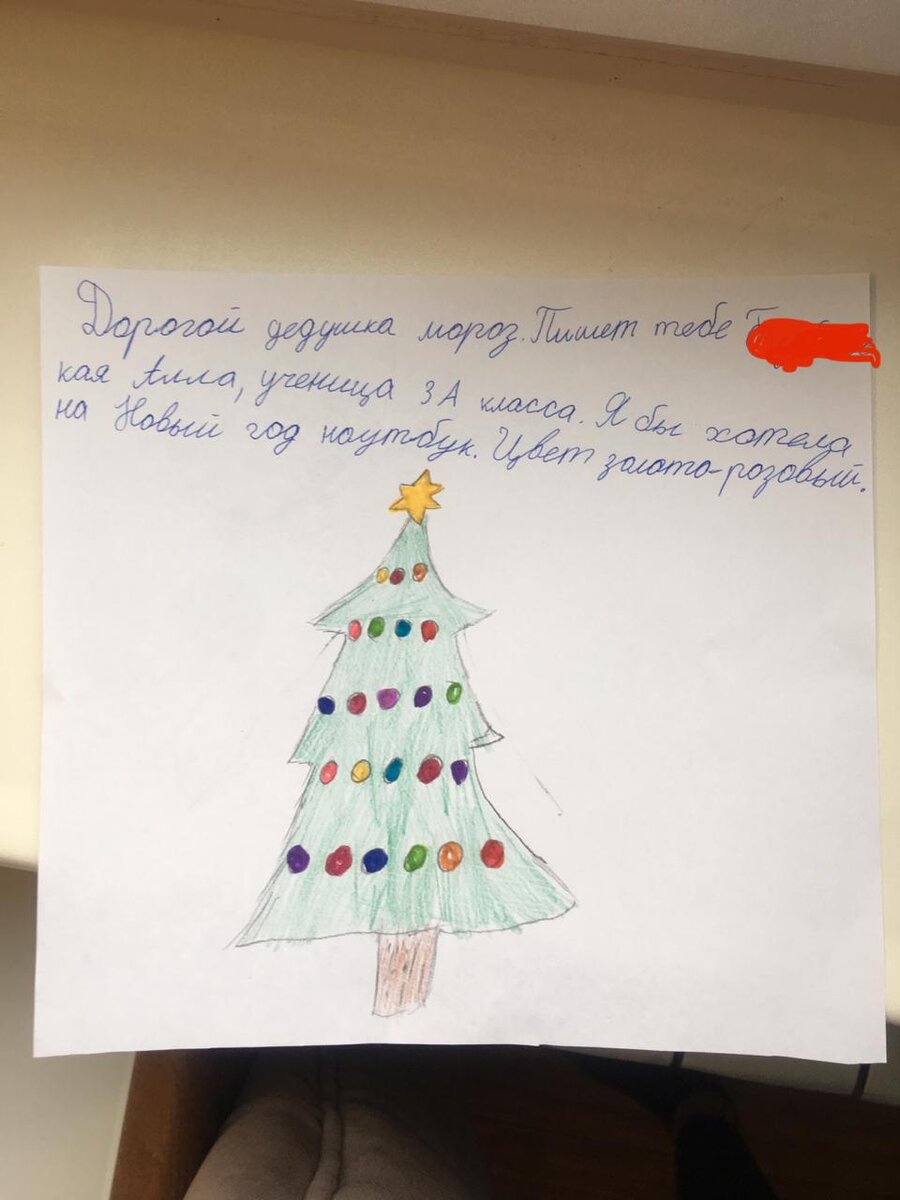 Дорогой дедушка мороз. Пишет тебе
кая Алла, ученица 3 А класса. Я бы хотела
на Новый год ноутбук. Цвет золото-розовый.